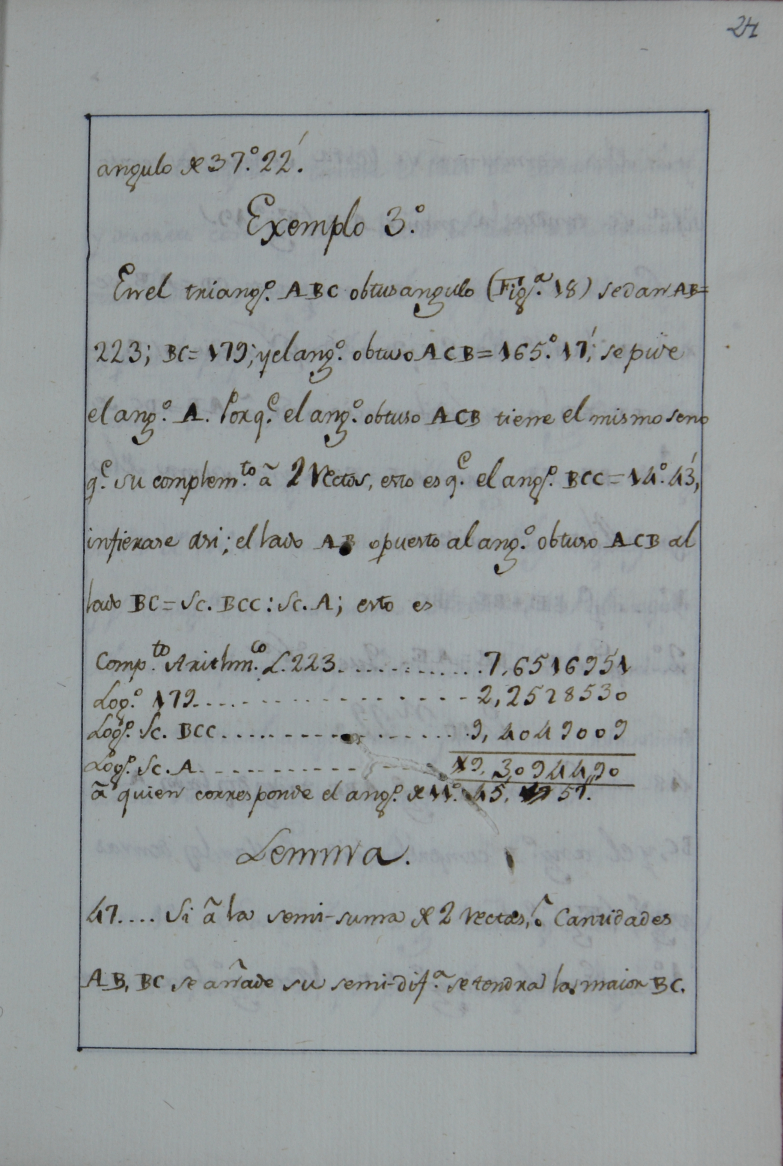 24
angulo de 37.° 22.′
Exemplo 3.°
En el triang.° ABC obtusangulo (Fig.ª 18) se dan AB=
223; BC= 179; y el ang.° obtuso ACB= 165.° 17′; se pide
el ang.° A. Porq.e el ang.° obtuso ACB tiene el mismo seno
q.e su complem.to ã 2 Rectos, esto es q.e el ang.° BCC= 14.° 43′,
infierase asi; el lado AB opuesto al ang.° obtuso ACB al
lado BC= Sc. BCC : Sc. A; esto es
Comp.to Arithm.co L. 223............7,6516951
Log.° 179.................2,2528530
Log.° Sc. BCC................9,4049009
Log.° Sc. A................19,3094490
ã quien corresponde el ang.° de 11.° 45, 57.
Lemma.
47.... Si ã la semi-suma de 2 rectas, ó Cantidades
AB, BC se añade su semi-dif.ª se tendra la maior BC.